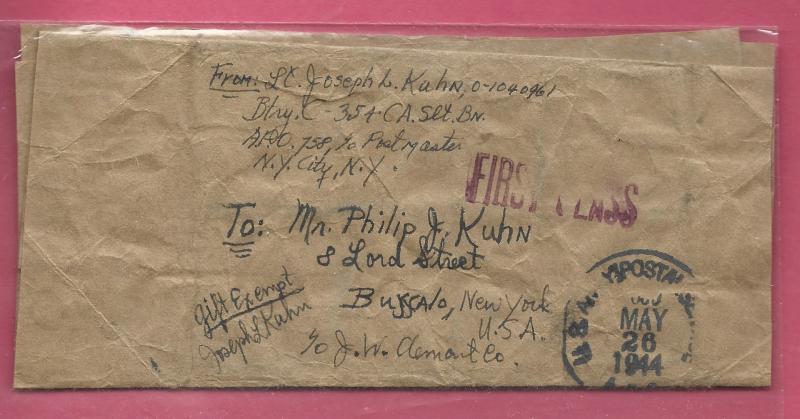 From: Lt. Joseph L. Kuhn, O-1040961
Btry. C - 354 CA. Slt. Bn.
A.P.O. 758, c/o Postmaster
N.Y. City, N.Y.
FIRST CLASS
To: Mr. Philip J. Kuhn
8 Lord Street
Buffalo, New York
U.S.A.
c/o J. W. Clement Co.
Gift Exempt
Joseph L Kuhn
U.S. POSTAL
MAY
26
1944